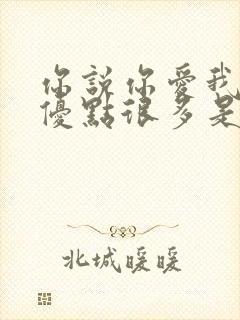 你說你愛我
優點很多是
北城暖暖